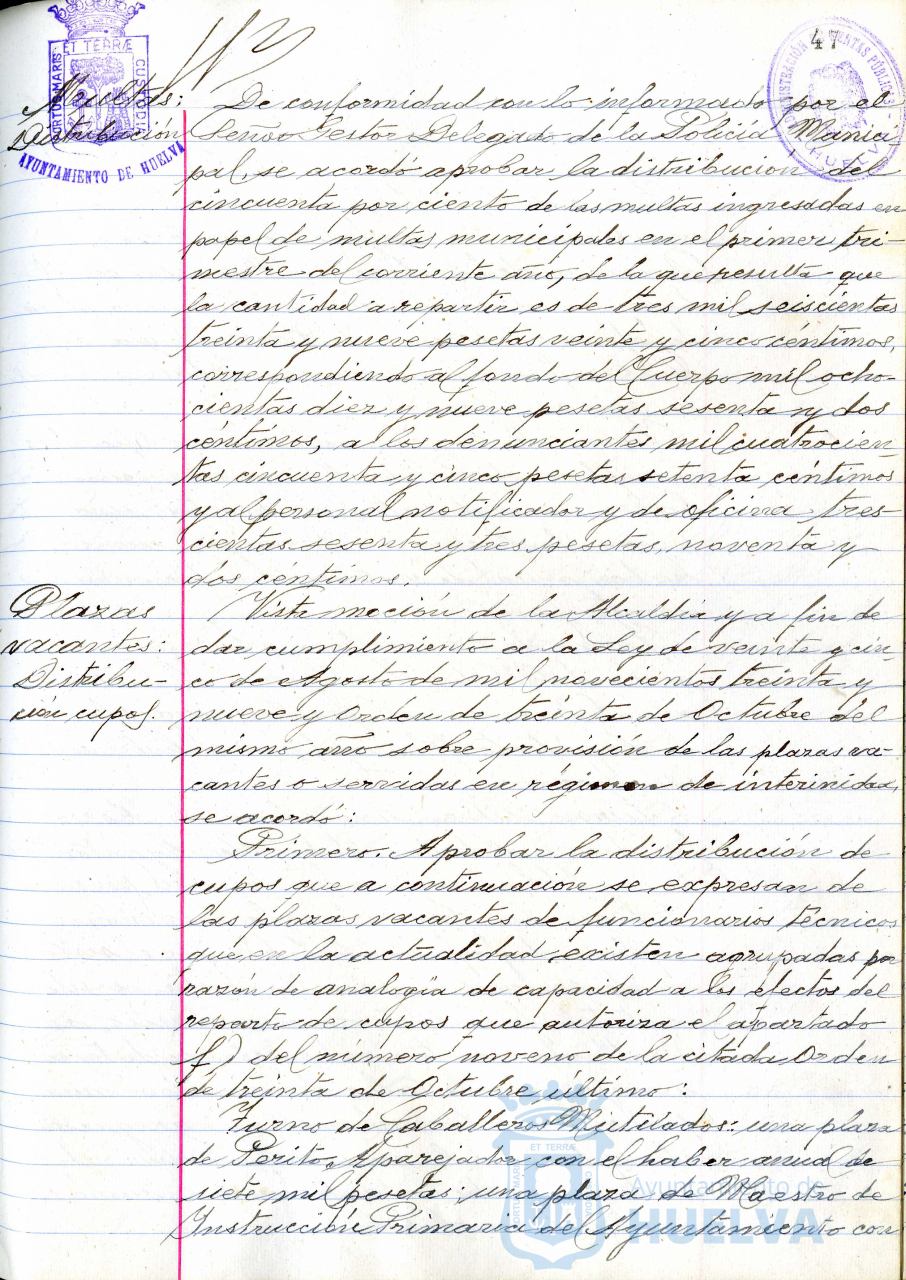 47
Multas:
Distribución
De conformidad con lo informado por el
Señor Gestor Delegado de la Policía Munici-
pal, se acordó aprobar la distribución del
cincuenta por ciento de las multas ingresadas en
papel de multas municipales en el primer tri-
mestre del corriente año, de la que resulta que
la cantidad a repartir es de tres mil seiscientas
treinta y nueve pesetas veinte y cinco céntimos,
correspondiendo al fondo del Cuerpo mil ocho-
cientas diez y nueve pesetas sesenta y dos
céntimos, a los denunciantes mil cuatrocien-
tas cincuenta y cinco pesetas setenta céntimos
y al personal notificador y de oficina tres-
cientas sesenta y tres pesetas, noventa y
dos céntimos.
Plazas
vacantes:
Distribu-
ción cupos.
Vista moción de la Alcaldía y a fin de
dar cumplimiento a la Ley de veinte y cin-
co de Agosto de mil novecientos treinta y
nueve y Orden de treinta de Octubre del
mismo año sobre provisión de las plazas va-
cantes o servidas en régimen de interinidad,
se acordó:
Primero. Aprobar la distribución de
cupos que a continuación se expresan de
las plazas vacantes de funcionarios técnicos
que en la actualidad existen agrupadas por
razón de analogía de capacidad a los efectos del
reparto de cupos que autoriza el apartado
f) del número noveno de la citada Orden
de treinta de Octubre último:
Turno de Caballeros Mutilados: una plaza
de Perito Aparejador con el haber anual de
siete mil pesetas; una plaza de Maestro de
Instrucción Primaria del Ayuntamiento con
ET TERRÆ
PORTUS MARIS
CUSTODIA
AYUNTAMIENTO DE HUELVA
HUELVA
ET TERRÆ
Ayuntamiento de
HUELVA